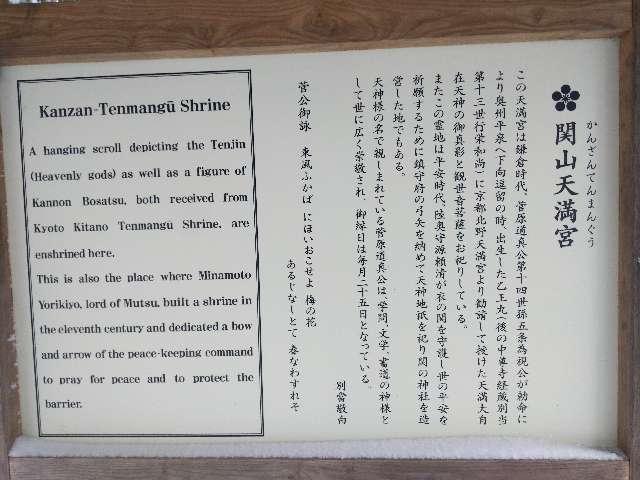 かんざんてんまんぐう
関山天満宮
この天満宮は鎌倉時代、菅原道真公第十四世孫五条為視公が勅命に
より奥州平泉へ下向逗留の時、出生した乙王丸(後の中尊寺経蔵別当
第十三世行栄和尚)に京都北野天満宮より勧請して授けた天満大自
在天神の御真影と観世音菩薩をお祀りしている。
またこの霊地は平安時代、陸奥守源頼清が衣の関を守護し世の平安を
祈願するために鎮守府の弓矢を納めて天神地祇を祀り関の神社を造
営した地でもある。
天神様の名で親しまれている菅原道真公は、学問、文学、書道の神様と
して世に広く崇敬され、御縁日は毎月二十五日となっている。
別當敬白
菅公御詠 東風ふかば にほいおこせよ 梅の花
あるじなしとて 春なわすれそ
Kanzan-Tenmangū Shrine
A hanging scroll depicting the Tenjin
(Heavenly gods) as well as a figure of
Kannon Bosatsu, both received from
Kyoto Kitano Tenmangu Shrine, are
enshrined here.
This is also the place where Minamoto
Yorikiyo, lord of Mutsu, built a shrine in
the eleventh century and dedicated a bow
and arrow of the peace-keeping command
to pray for peace and to protect the
barrier.